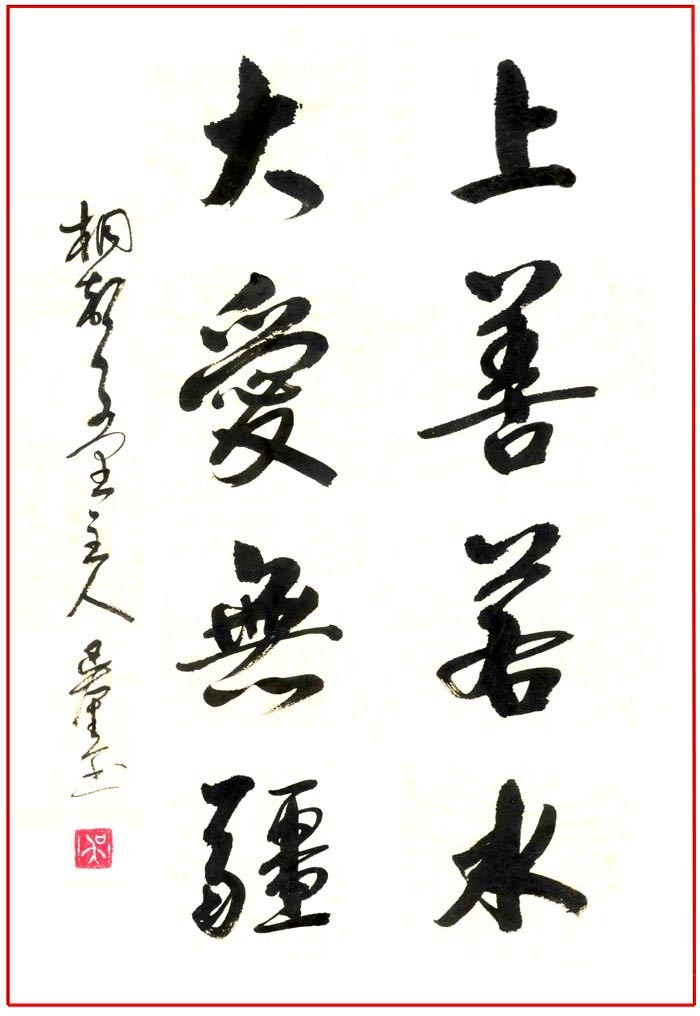 上善若水
大愛無疆
桐都
主人